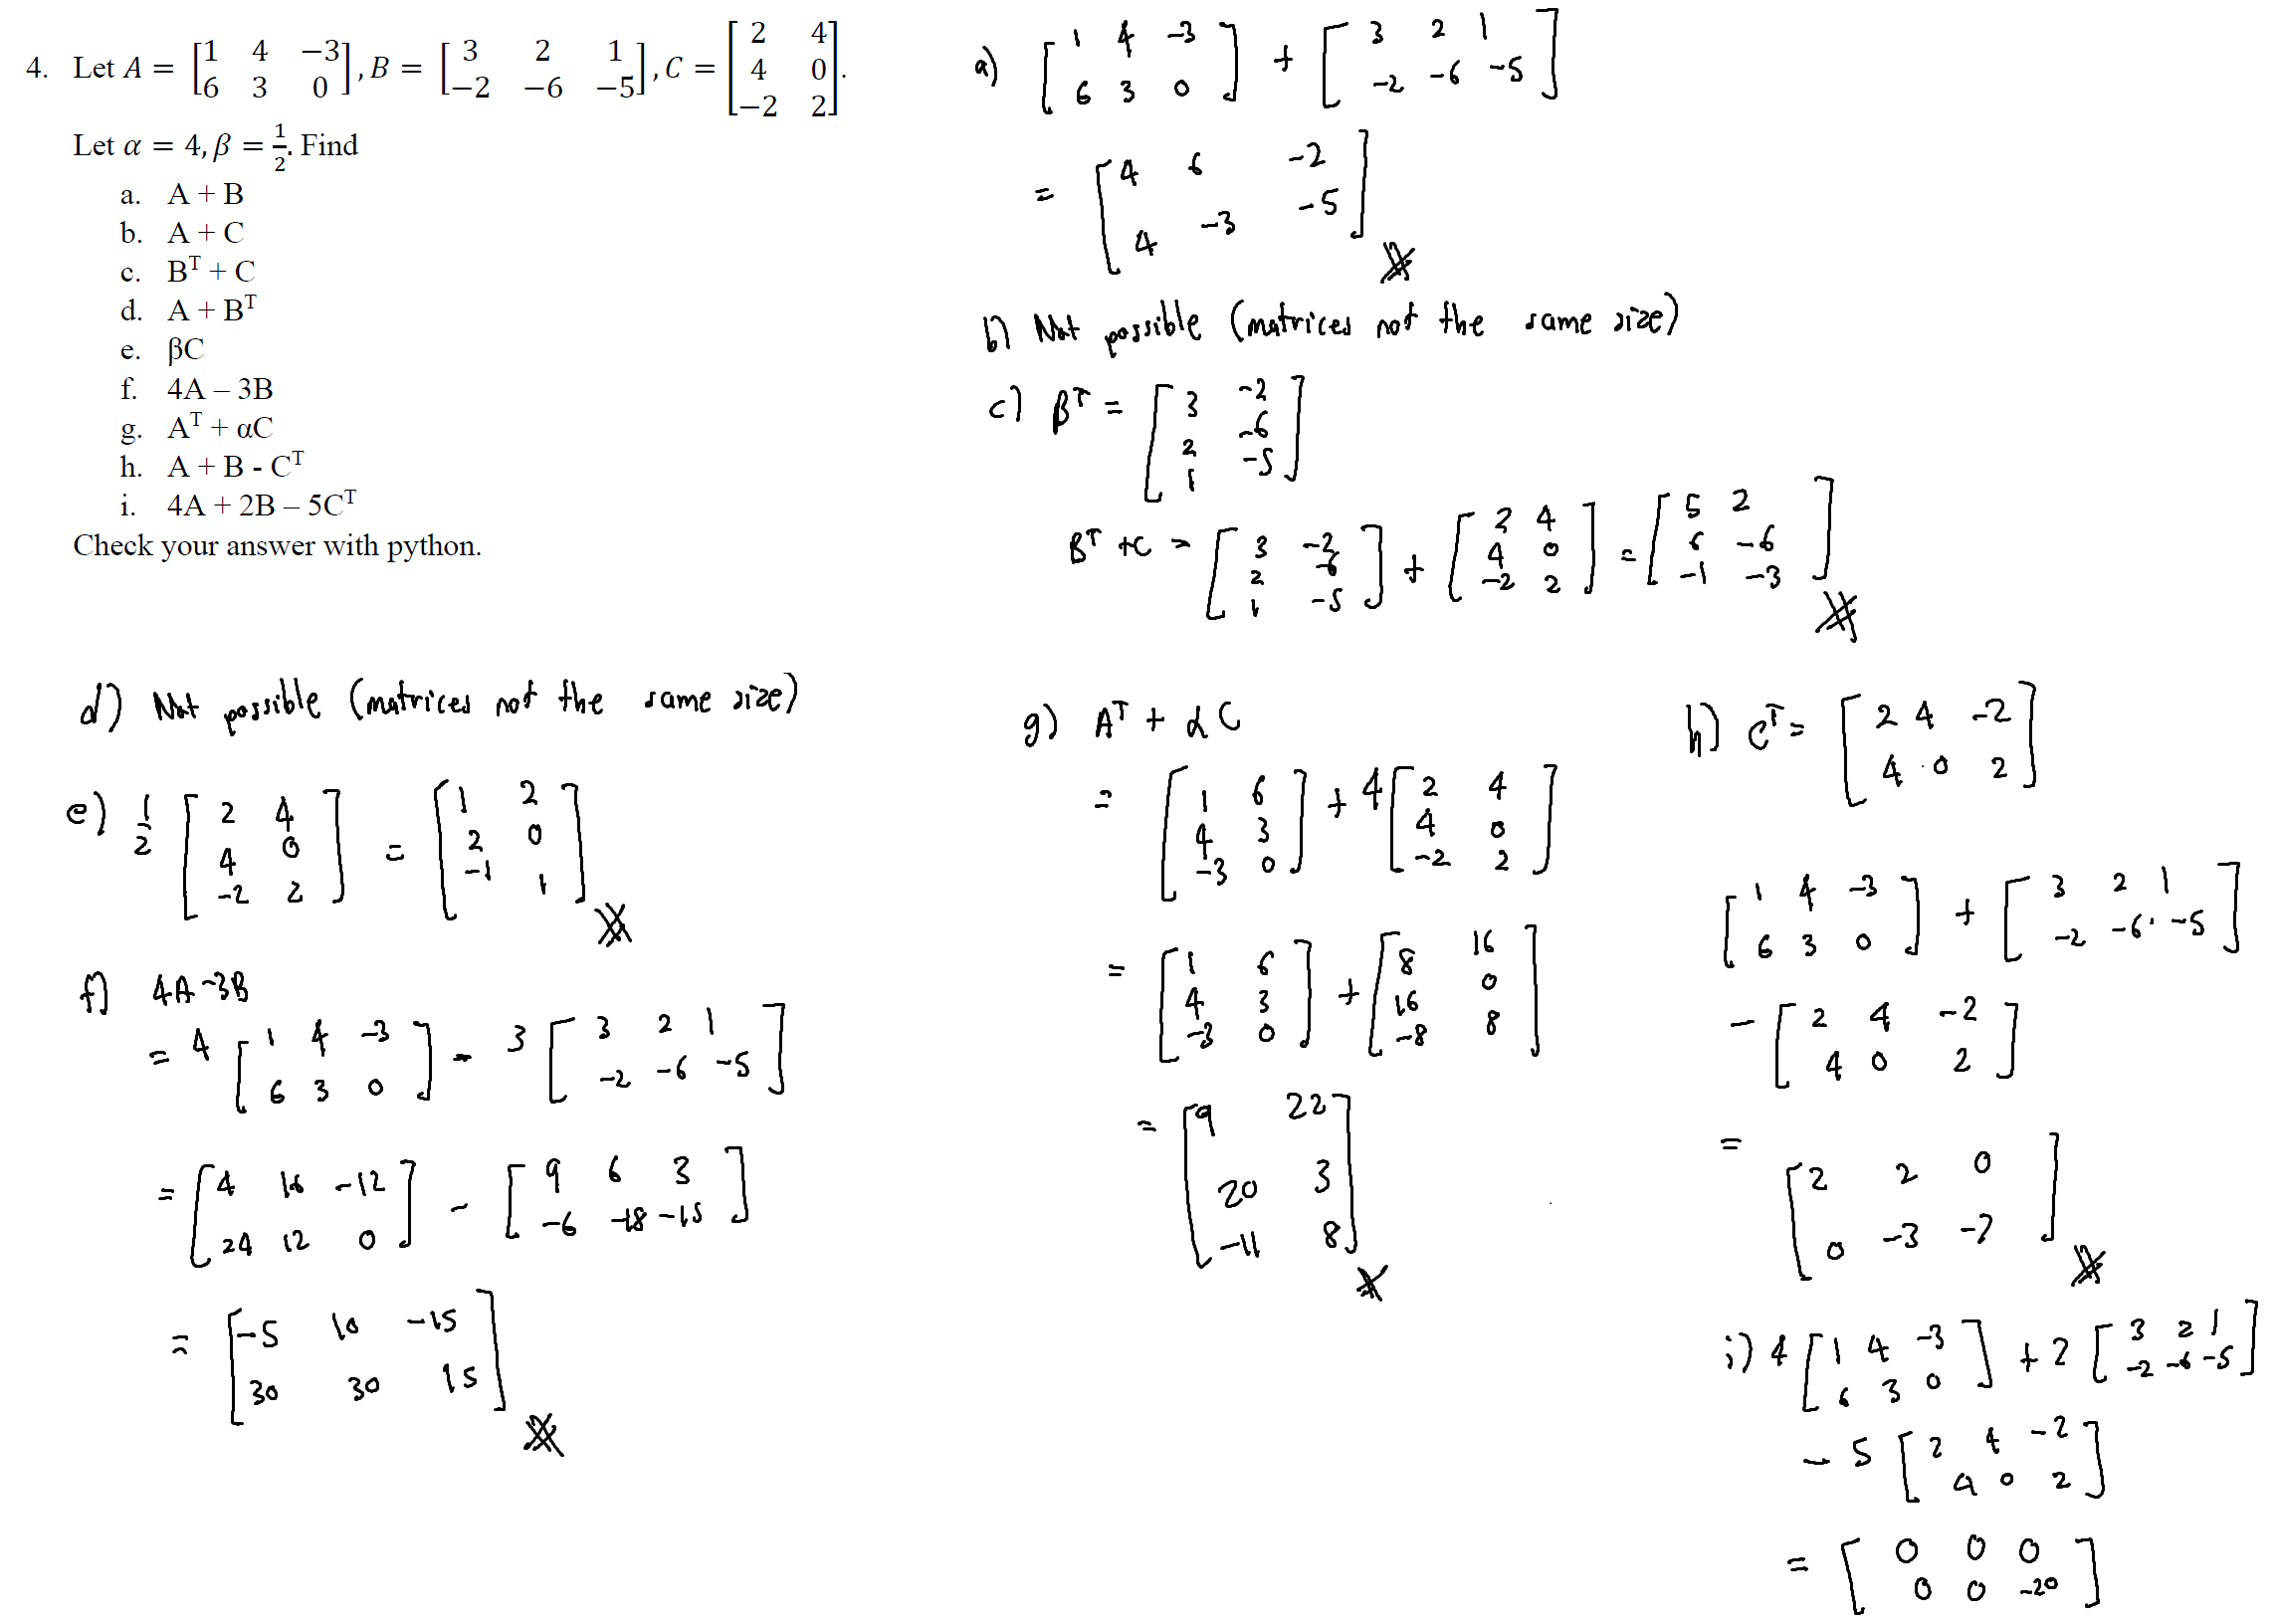 4. Let A = [1 4 −3; 6 3 0], B = [3 2 1; −2 −6 −5], C = [2 4; 4 0; −2 2].
Let α = 4, β = 1/2. Find
a. A + B
b. A + C
c. Bᵀ + C
d. A + Bᵀ
e. βC
f. 4A – 3B
g. Aᵀ + αC
h. A + B - Cᵀ
i. 4A + 2B – 5Cᵀ
Check your answer with python.
a) [1 4 −3; 6 3 0] + [3 2 1; −2 −6 −5]
= [4 6 −2; 4 −3 −5]
b) Not possible (matrices not the same size)
c) Bᵀ = [3 −2; 2 −6; 1 −5]
Bᵀ + C = [3 −2; 2 −6; 1 −5] + [2 4; 4 0; −2 2] = [5 2; 6 −6; −1 −3]
d) Not possible (matrices not the same size)
e) 1/2 [2 4; 4 0; −2 2] = [1 2; 2 0; −1 1]
f) 4A −3B
= 4 [1 4 −3; 6 3 0] − 3 [3 2 1; −2 −6 −5]
= [4 16 −12; 24 12 0] − [9 6 3; −6 −18 −15]
= [−5 10 −15; 30 30 15]
g) Aᵀ + αC
= [1 6; 4 3; −3 0] + 4 [2 4; 4 0; −2 2]
= [1 6; 4 3; −3 0] + [8 16; 16 0; −8 8]
= [9 22; 20 3; −11 8]
h) Cᵀ = [2 4 −2; 4 0 2]
[1 4 −3; 6 3 0] + [3 2 1; −2 −6 −5]
− [2 4 −2; 4 0 2]
= [2 2 0; 0 −3 −7]
i) 4 [1 4 −3; 6 3 0] + 2 [3 2 1; −2 −6 −5]
− 5 [2 4 −2; 4 0 2]
= [0 0 0; 0 0 −20]